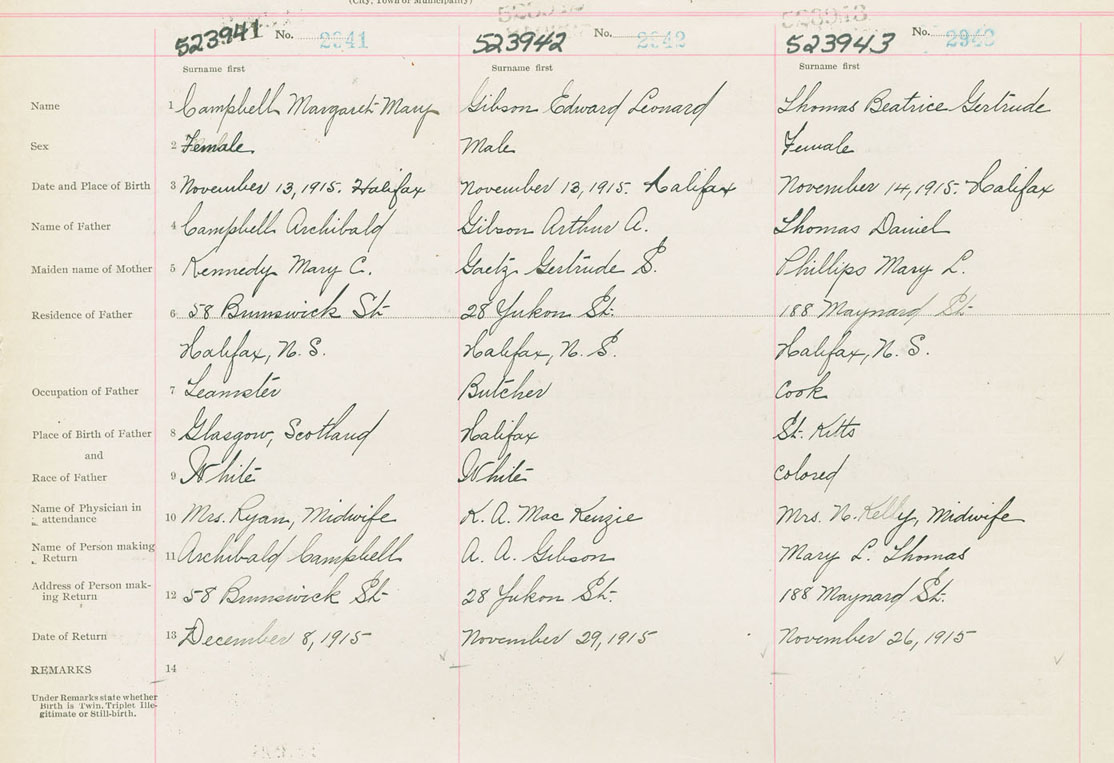 (City, Town or Municipality)
523941 No. 2941 523942 No. 2942 523943 No. 2943
Surname first Surname first Surname first
Name 1 Campbell Margaret Mary Gibson Edward Leonard Thomas Beatrice Gertrude
Sex 2 Female. Male Female
Date and Place of Birth 3 November 13, 1915. Halifax November 13, 1915. Halifax November 14, 1915. Halifax
Name of Father 4 Campbell Archibald Gibson Arthur A. Thomas Daniel
Maiden name of Mother 5 Kennedy Mary C. Gaetz Gertrude S. Phillips Mary L.
Residence of Father 6 58 Brunswick St. 28 Yukon St. 188 Maynard St.
Halifax, N.S. Halifax, N.S. Halifax, N.S.
Occupation of Father 7 Teamster Butcher Cook
Place of Birth of Father 8 Glasgow, Scotland Halifax St. Kitts
and
Race of Father 9 White White Colored
Name of Physician in
attendance 10 Mrs. Ryan, Midwife K. A. MacKenzie Mrs. N. Kelly, Midwife
Name of Person making
Return 11 Archibald Campbell A. A. Gibson Mary L. Thomas
Address of Person mak-
ing Return 12 58 Brunswick St. 28 Yukon St. 188 Maynard St.
Date of Return 13 December 8, 1915 November 29, 1915 November 26, 1915
REMARKS 14
Under Remarks state whether
Birth is Twin, Triplet Ille-
gitimate or Still-birth.